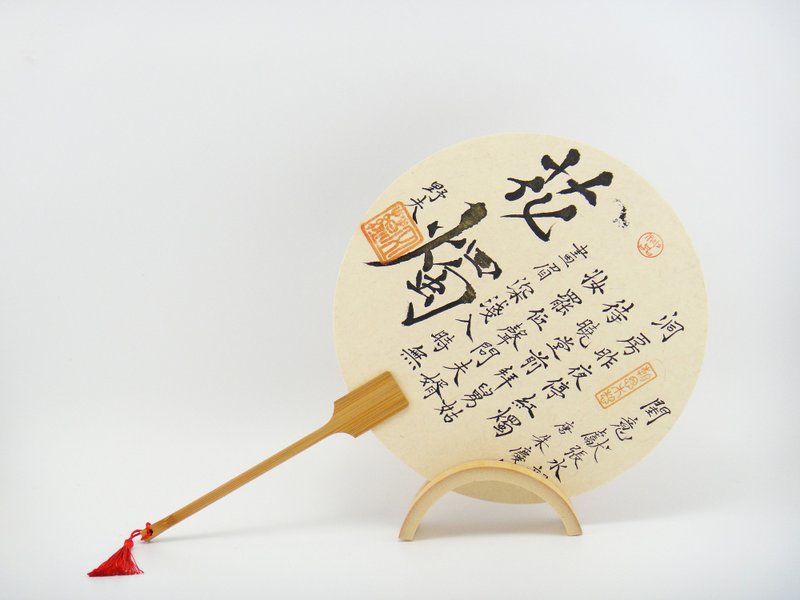 花燭
洞房昨夜停紅燭
待曉堂前拜舅姑
妝罷低聲問夫婿
畫眉深淺入時無
閨意獻張水部
唐朱慶
野夫